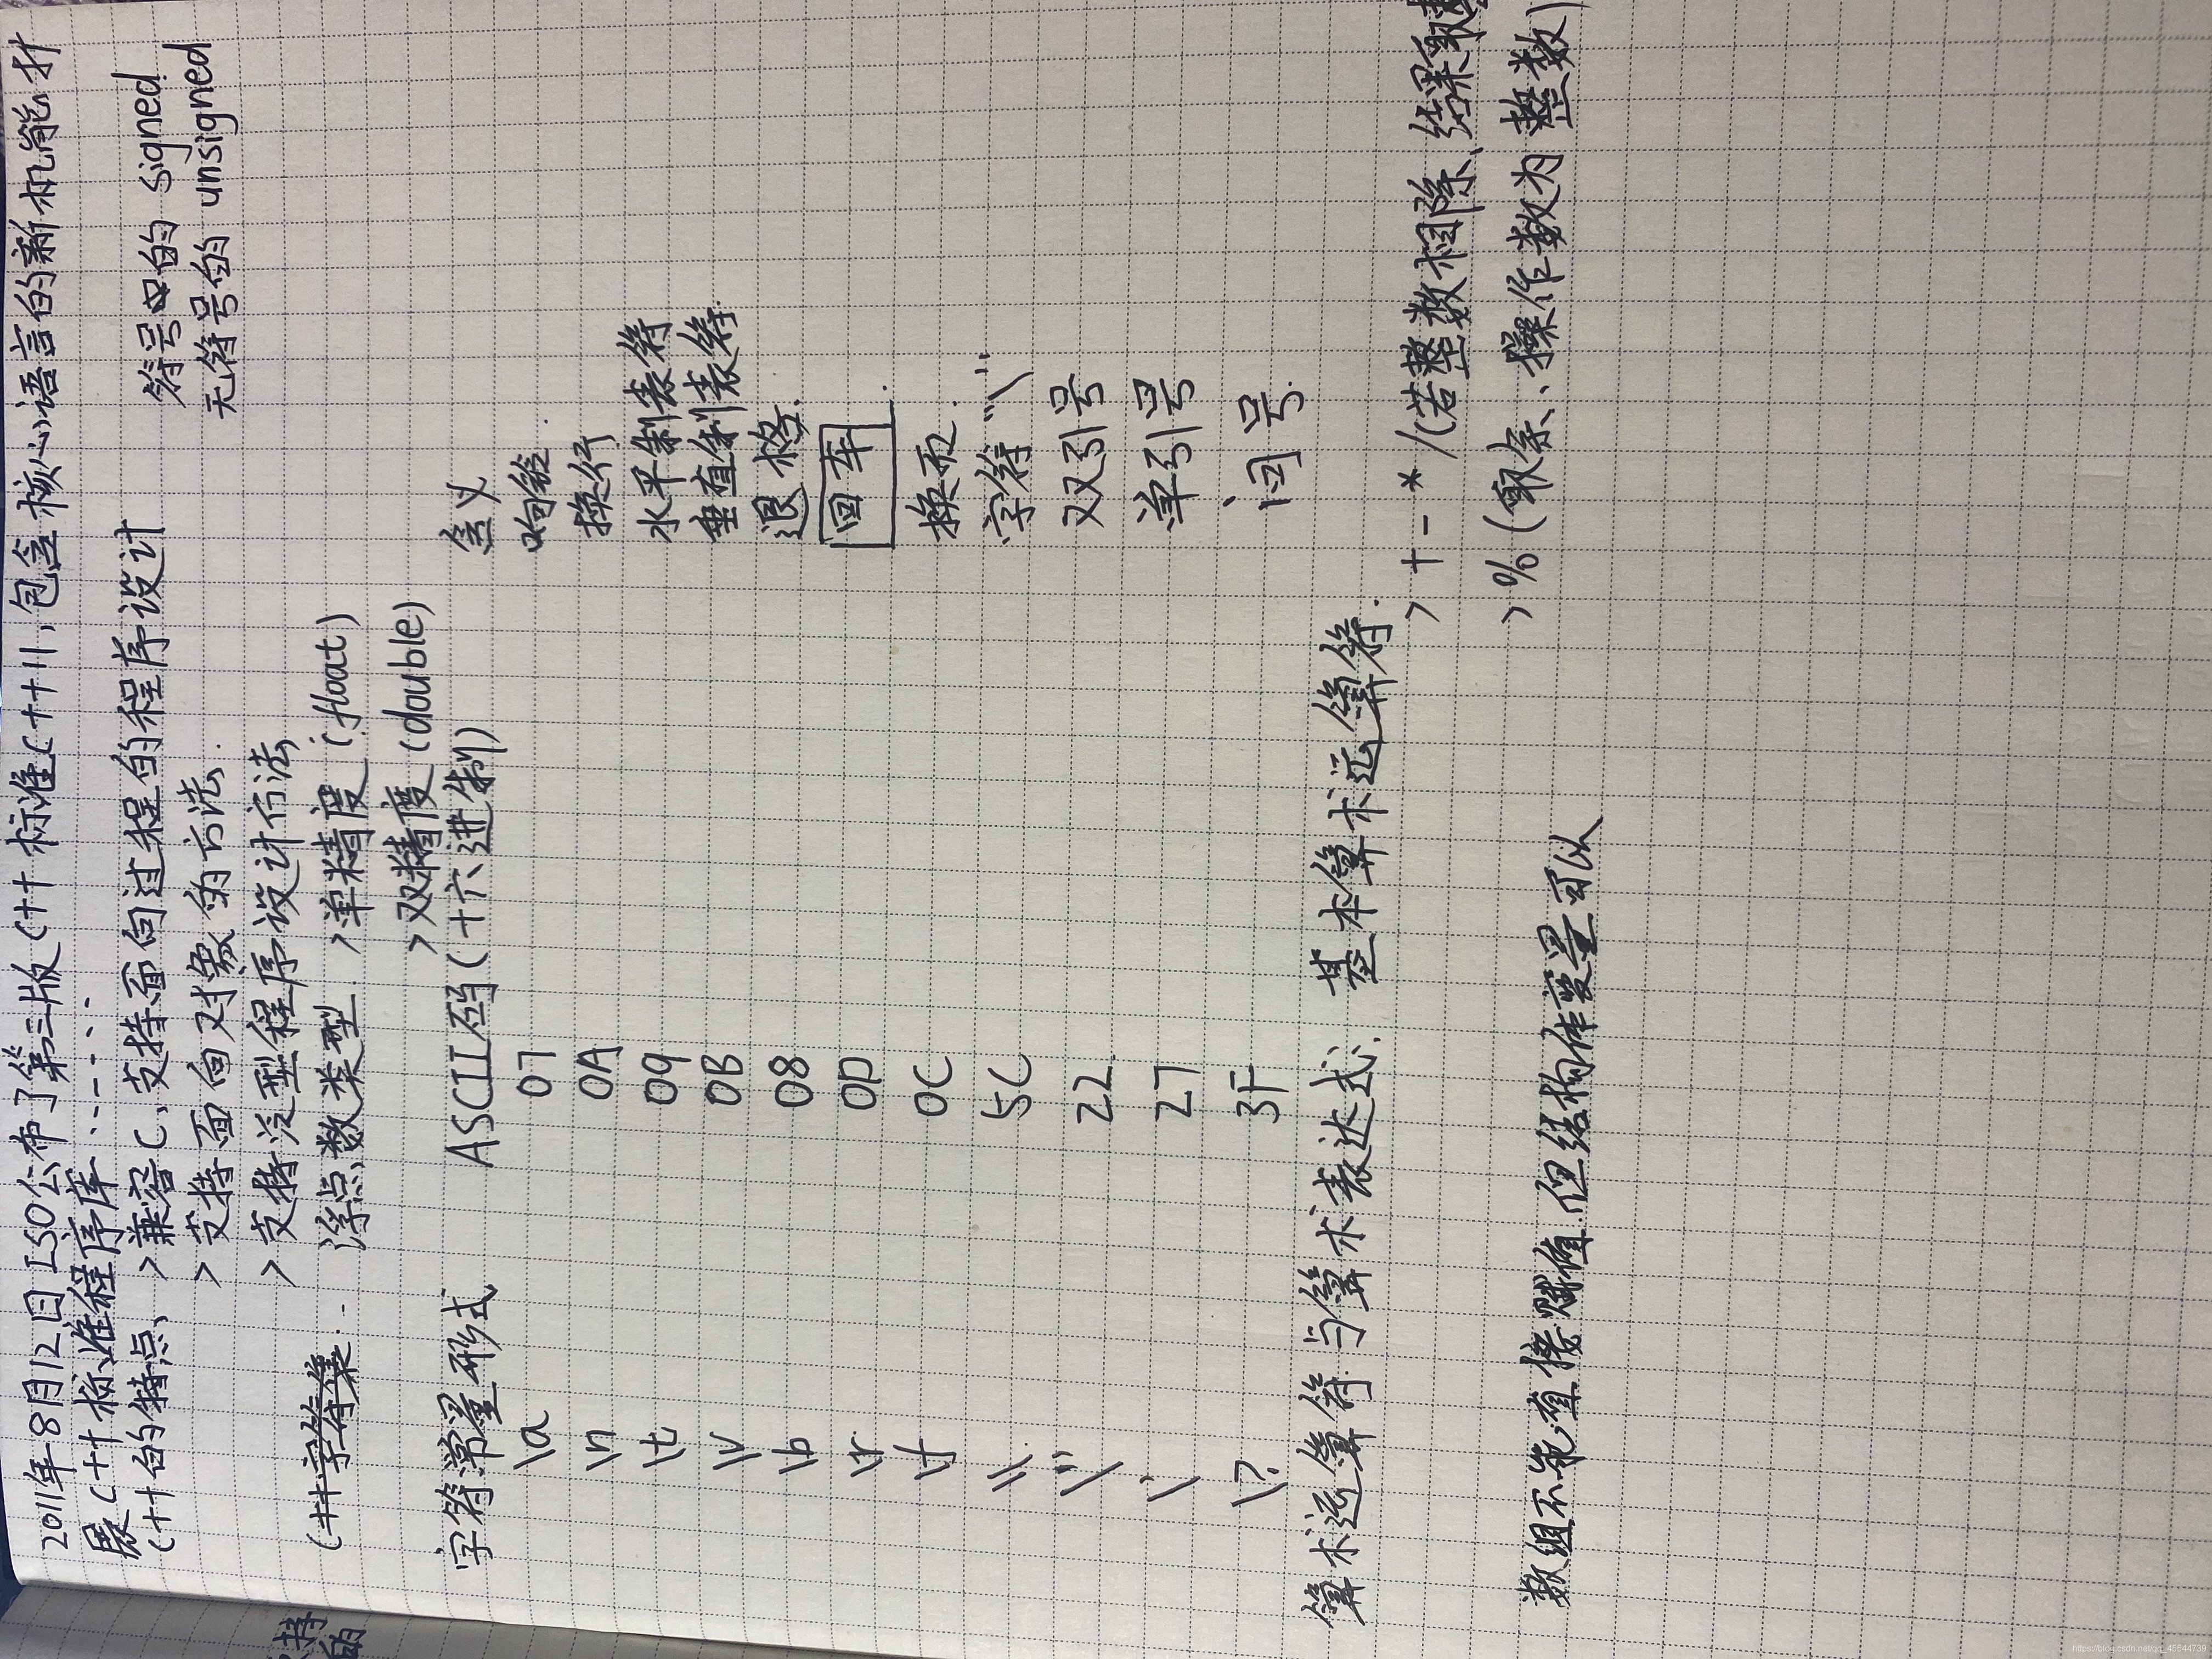 2011年8月12日 ISO公布了第三版C++标准C++11,包含核心语言的新机能,扩
展C++标准程序库......
C++的特点、>兼容C,支持面向过程的程序设计
符号的 signed
>支持面向对象的方法.
无符号的 unsigned
>支持泛型程序设计方法
C++字符集.. 浮点数类型. >单精度(float)
>双精度(double)
字符常量形式 ASCII码(十六进制) 含义
\a 07 响铃.
\n 0A 换行
\t 09 水平制表符
\v 0B 垂直制表符.
\b 08 退格.
\r 0D 回车.
\f 0C 换页.
\\ 5C 字符"\"
\" 22 双引号
\' 27 单引号
\? 3F 问号.
算术运算符与算术表达式. 基本算术运算符.
>+ - * /(若整数相除、结果取
>%(取余、操作数为整数)
数组不能直接赋值.但结构体变量可以
持
的
https://blog.csdn.net/qq_45544739